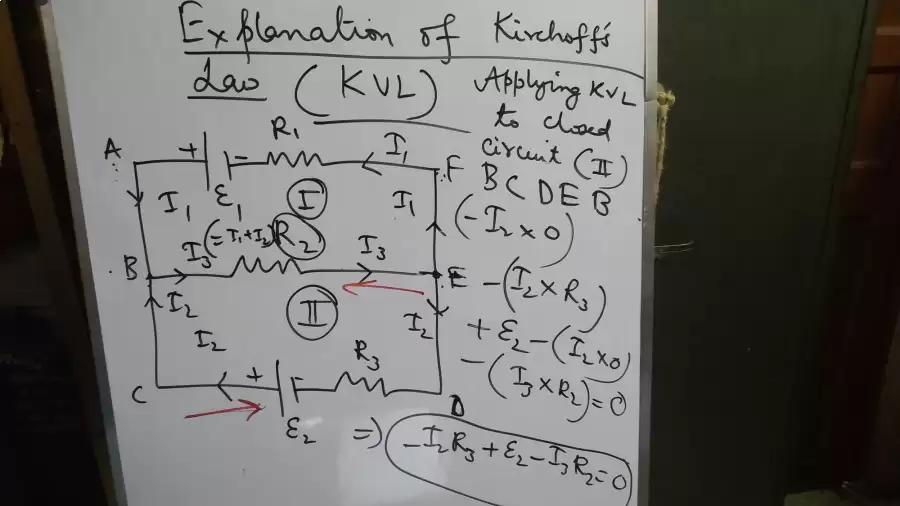 Explanation of Kirchoff's
Law (KVL)
Applying KVL
to closed
circuit (II)
B C D E B
(-I₂ × 0)
-(I₂ × R₃)
+ ε₂ - (I₂ × 0)
-(I₃ × R₂) = 0
=> -I₂R₃ + ε₂ - I₃R₂ = 0
A + - R₁ I₁ F
I₁ ε₁ I I₁
I₃ (= I₁ + I₂) R₂ I₃
B E
I₂ II I₂
I₂ R₃
C + - D
ε₂